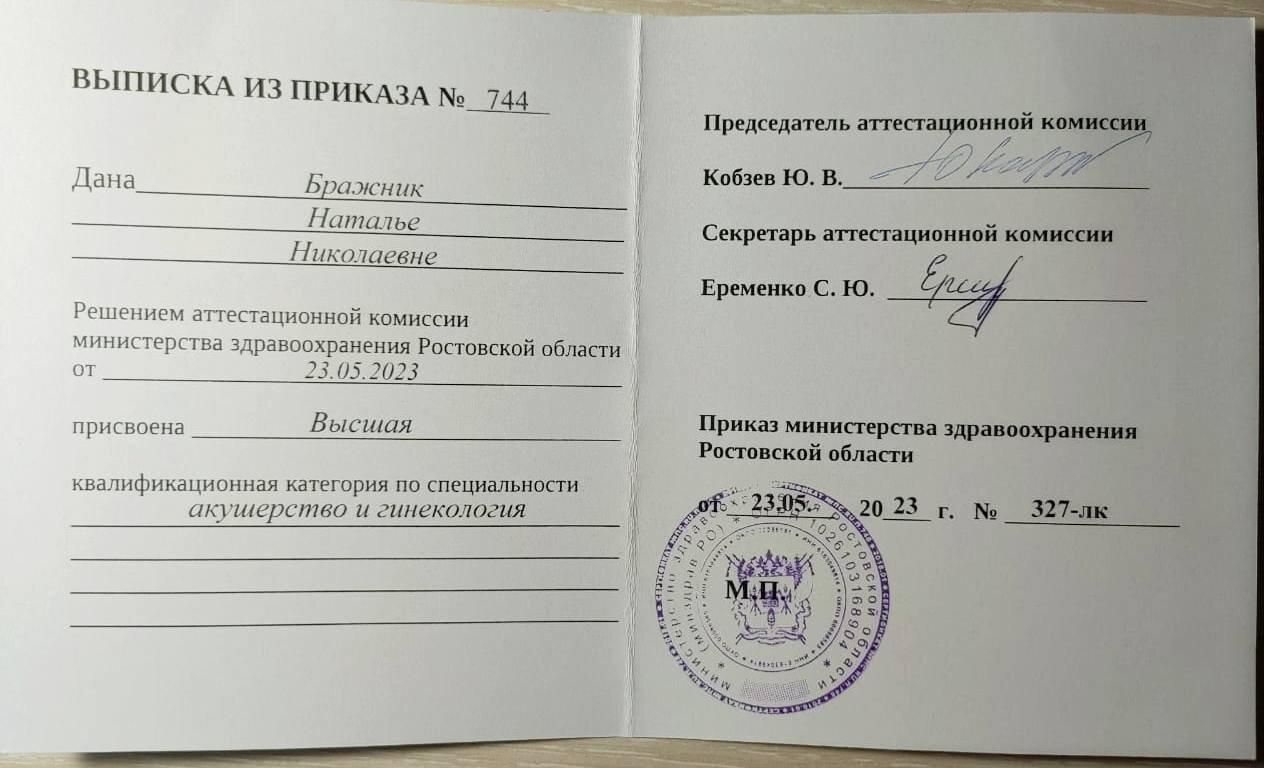 ВЫПИСКА ИЗ ПРИКАЗА № 744
Дана Бражник
Наталье
Николаевне
Решением аттестационной комиссии
министерства здравоохранения Ростовской области
от 23.05.2023
присвоена Высшая
квалификационная категория по специальности
акушерство и гинекология
Председатель аттестационной комиссии
Кобзев Ю. В.
Секретарь аттестационной комиссии
Еременко С. Ю.
Приказ министерства здравоохранения
Ростовской области
от 23.05. 2023 г. № 327-лк
М.П.
Министерство здравоохранения Ростовской области
(минздрав РО) * ОГРН 1026103168904 *